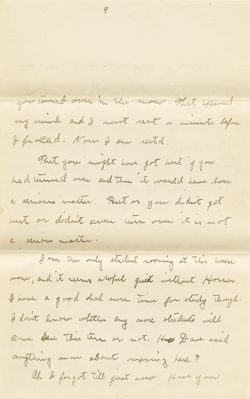 9
you turned over in the snow. That
my mind and I must rest a minute before
I proceed. Now I am rested.
But you might have got hurt if you
had turned over and then it would have been
a serious matter. But as you didn't get
hurt or didn't even turn over it is not
a serious matter.
I am the only student rooming at this house
now, and it seems awful quiet without Homer.
I have a good deal more time for study though.
I don't know whether any more students will
come here this term or not. Has Dave said
anything more about moving here?
Oh I forgot till just now. Have you